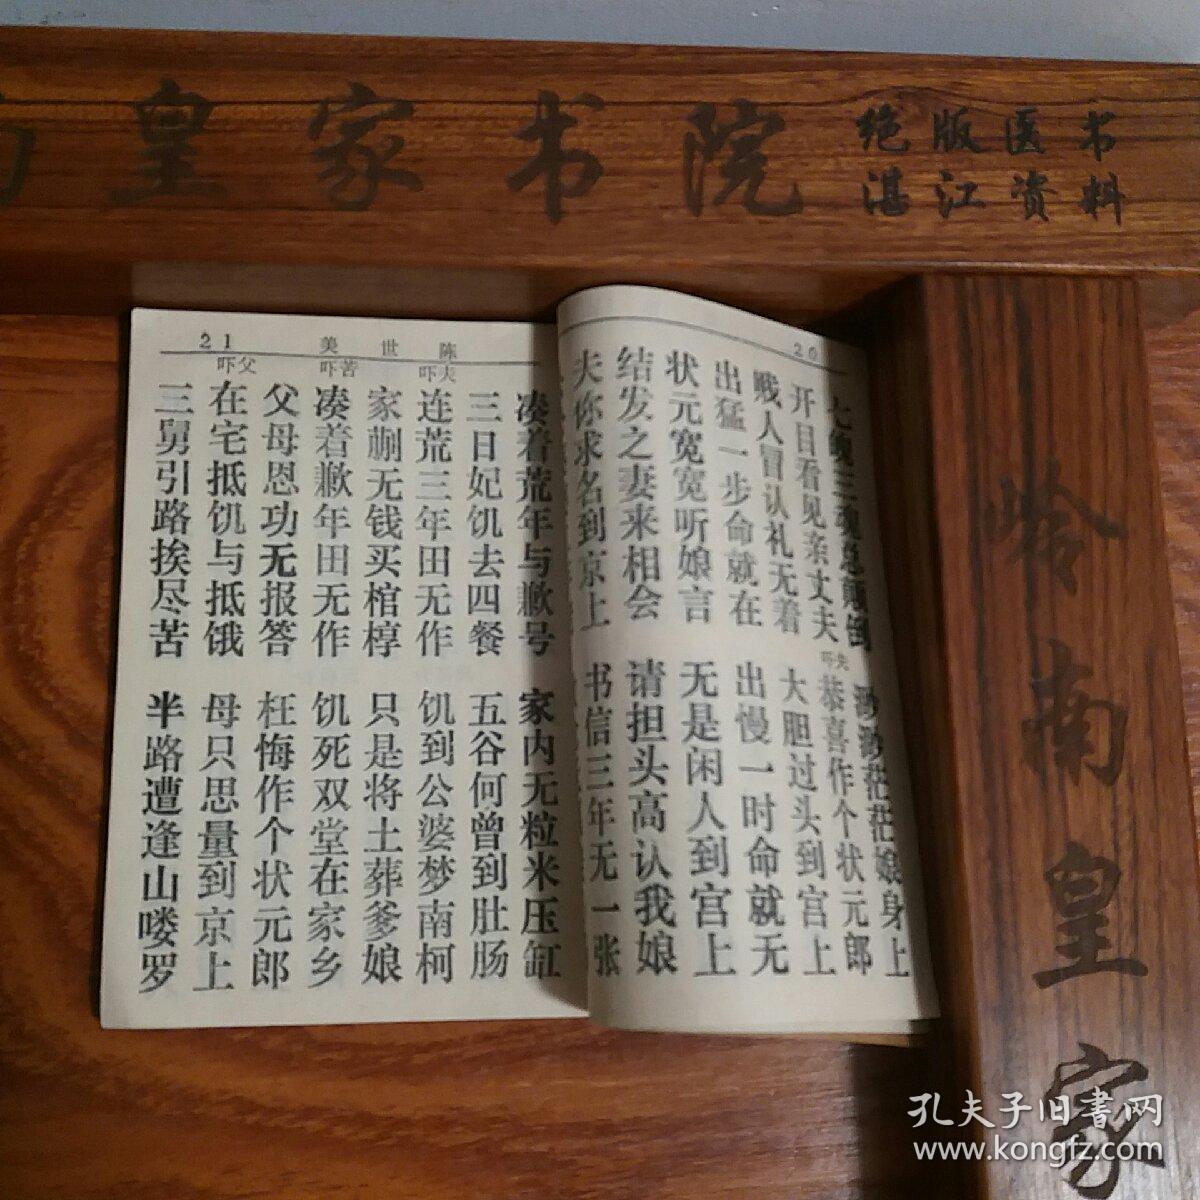 皇家书院
绝版医书
湛江资料
岭南皇家
20
七魄三魂总颠倒 渺渺茫茫娘身上
开目看见亲丈夫 吓夫 恭喜作个状元郎
贱人冒认礼无着 大胆过头到宫上
出猛一步命就在 出慢一时命就无
状元宽宽听娘言 无是闲人到宫上
结发之妻来相会 请担头高认我娘
夫你求名到京上 书信三年无一张
陈世美 21
凑着荒年与歉号 家内无粒米压缸
三日妃饥去四餐 五谷何曾到肚肠
吓夫 连荒三年田无作 饥到公婆梦南柯
家蒯无钱买棺椁 只是将土葬爹娘
吓苦 凑着歉年田无作 饥死双堂在家乡
父母恩功无报答 枉悔作个状元郎
吓父 在宅抵饥与抵饿 母只思量到京上
三舅引路挨尽苦 半路遭逢山喽罗
孔夫子旧书网
www.kongfz.com